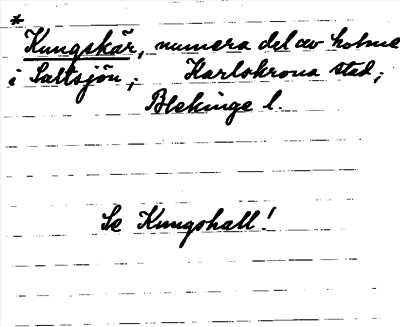 *
Kungskär, numera del av holme
i Saltsjön; Karlskrona stad;
Blekinge l.
Se Kungshall!